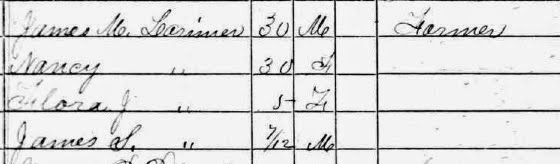 James M. Lorimer 30 M Farmer
Nancy " 30 F
Flora J " 5 F
James S. " 7/12 M